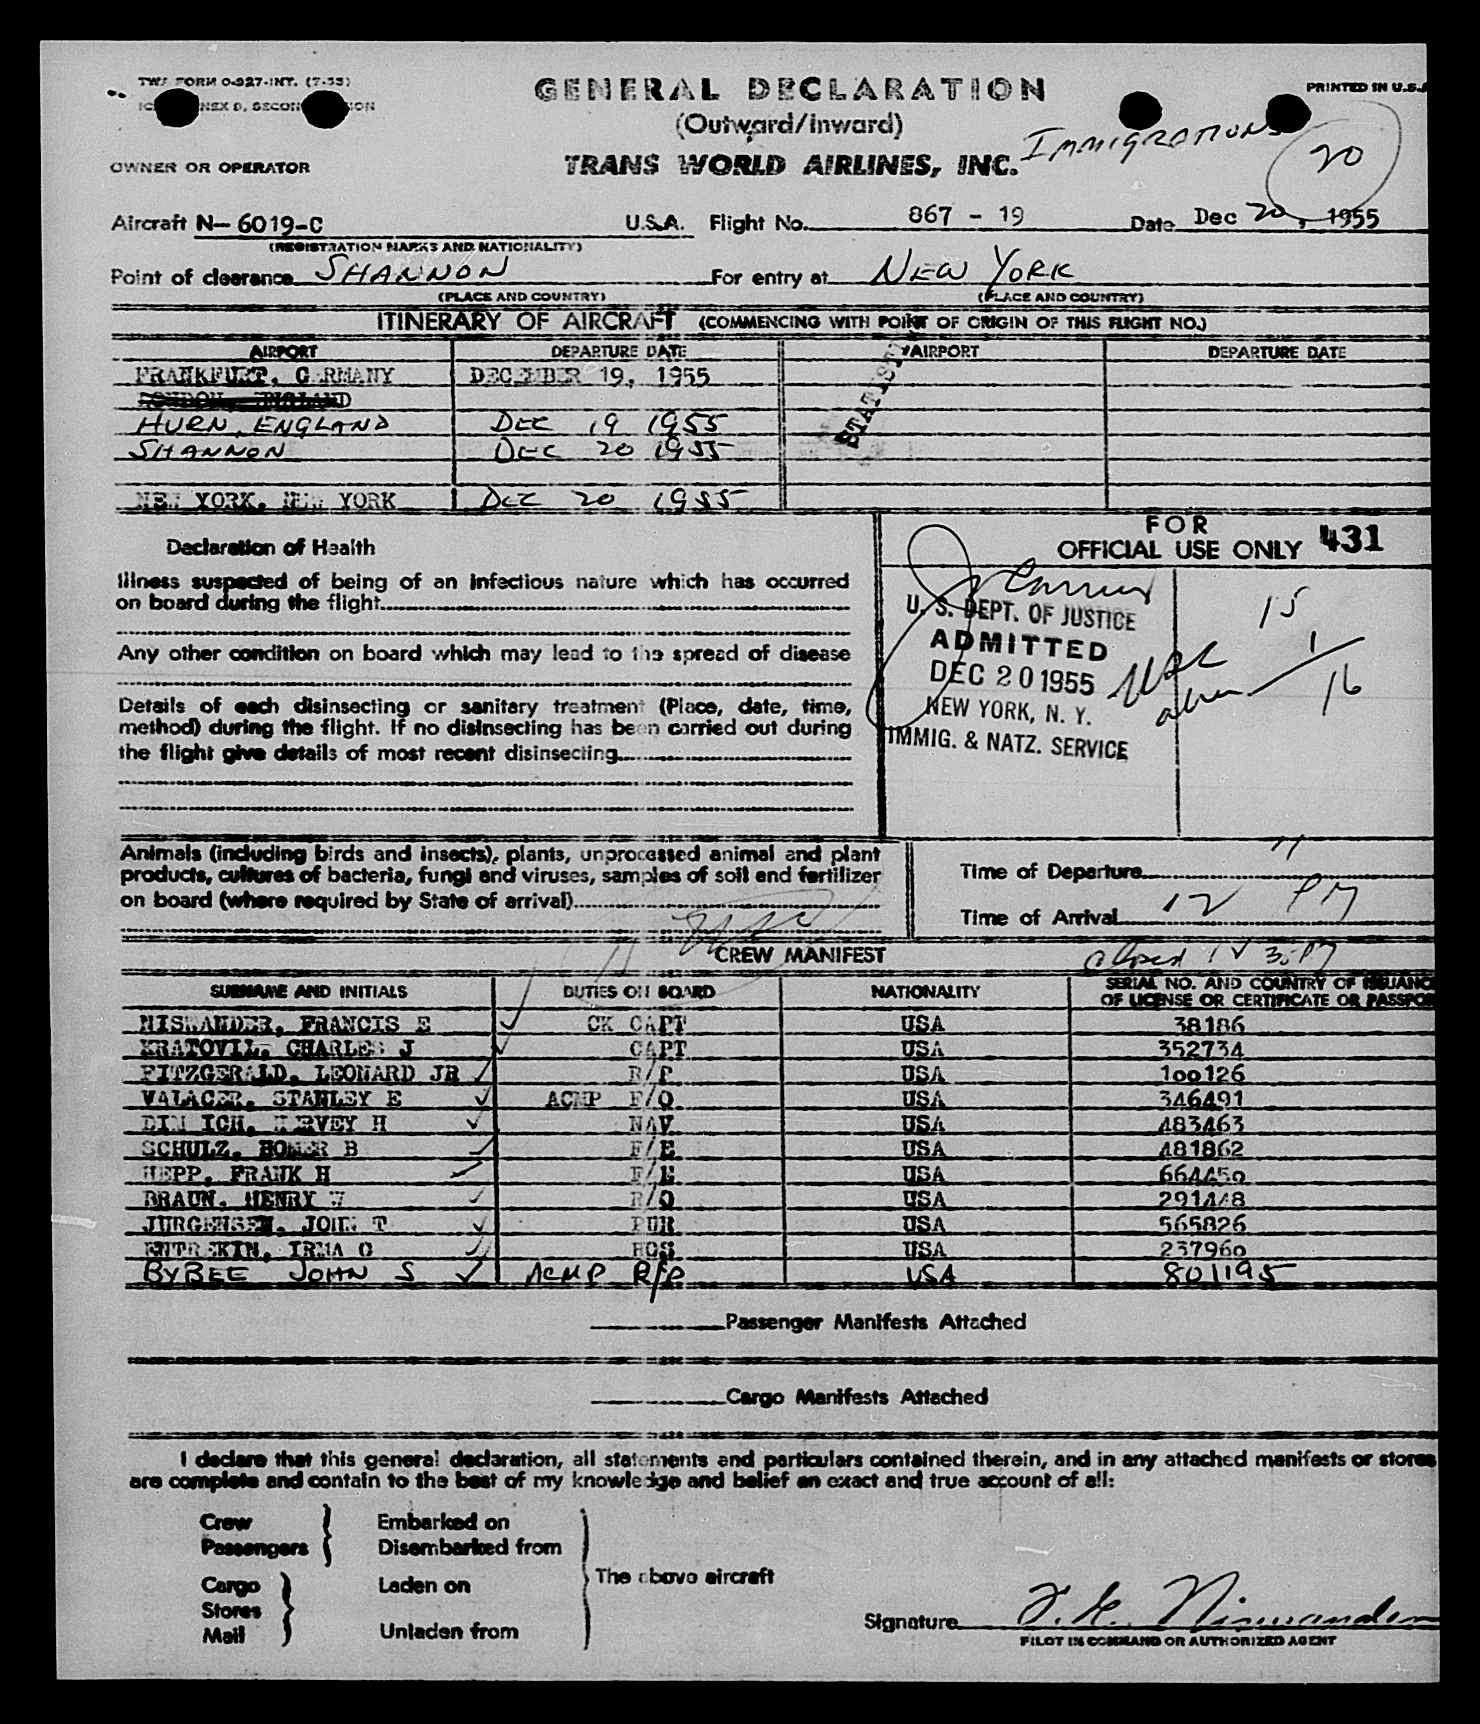 TWA FORM O-927-INT. (7-55)
GENERAL DECLARATION
PRINTED IN U.S.A
(Outward/Inward)
IMMIGRATIONS
20
OWNER OR OPERATOR
TRANS WORLD AIRLINES, INC.
Aircraft N-6019-C U.S.A. Flight No. 867 - 19 Date Dec 20, 1955
(REGISTRATION MARKS AND NATIONALITY)
Point of clearance SHANNON For entry at NEW YORK
(PLACE AND COUNTRY) (PLACE AND COUNTRY)
ITINERARY OF AIRCRAFT (COMMENCING WITH POINT OF ORIGIN OF THIS FLIGHT NO.)
AIRPORT DEPARTURE DATE AIRPORT DEPARTURE DATE
FRANKFURT, GERMANY DECEMBER 19, 1955
LONDON, ENGLAND
HURN, ENGLAND DEC 19 1955
SHANNON DEC 20 1955
NEW YORK, NEW YORK DEC 20 1955
FOR
OFFICIAL USE ONLY 431
Declaration of Health
Illness suspected of being of an infectious nature which has occurred
on board during the flight
Any other condition on board which may lead to the spread of disease
Details of each disinsecting or sanitary treatment (Place, date, time,
method) during the flight. If no disinsecting has been carried out during
the flight give details of most recent disinsecting
U. S. DEPT. OF JUSTICE
ADMITTED
DEC 20 1955
NEW YORK, N. Y.
IMMIG. & NATZ. SERVICE
15
1
16
Animals (including birds and insects), plants, unprocessed animal and plant
products, cultures of bacteria, fungi and viruses, samples of soil and fertilizer
on board (where required by State of arrival)
Time of Departure
Time of Arrival 12 PM
CREW MANIFEST
SURNAME AND INITIALS DUTIES ON BOARD NATIONALITY SERIAL NO. AND COUNTRY OF ISSUANC
OF LICENSE OR CERTIFICATE OR PASSPO
NISWANDER, FRANCIS E CK CAPT USA 38186
KRATOVIL, CHARLES J CAPT USA 352734
FITZGERALD, LEONARD JR R/P USA 100126
VALACER, STANLEY E ACMP F/O USA 346491
HARVEY H NAV USA 483463
SCHULZ, HOMER B F/E USA 481862
HEPP, FRANK H F/E USA 664450
BRAUN, HENRY W R/O USA 291448
JURGENSEN, JOHN T PUR USA 565826
ENTREKIN, IRMA O HOS USA 237960
BYBEE JOHN S ACMP R/P USA 801195
Passenger Manifests Attached
Cargo Manifests Attached
I declare that this general declaration, all statements and particulars contained therein, and in any attached manifests or stores
are complete and contain to the best of my knowledge and belief an exact and true account of all:
Crew Embarked on
Passengers Disembarked from
The above aircraft
Cargo Laden on
Stores
Mail Unladen from
Signature F. E. Niswander
PILOT IN COMMAND OR AUTHORIZED AGENT